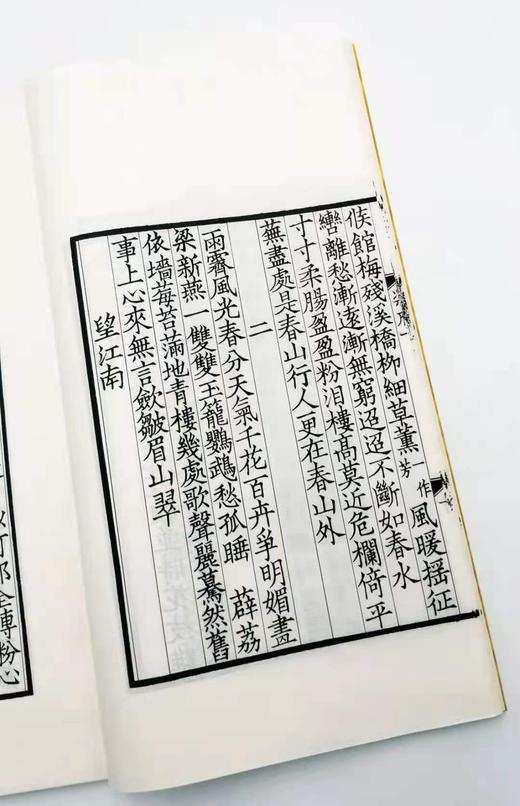 候館梅殘溪橋柳細草薰一作芳風暖揺征
轡離愁漸逺漸無窮迢迢不斷如春水
寸寸柔腸盈盈粉淚樓髙莫近危欄倚平
蕪盡處是春山行人更在春山外
二
雨霽風光春分天氣千花百卉爭明媚畫
梁新燕一雙雙玉籠鸚鵡愁孤睡　薜荔
依墻莓苔滿地青樓幾處歌聲麗驀然舊
事上心來無言歛皺眉山翠
望江南
郎全傅粉心